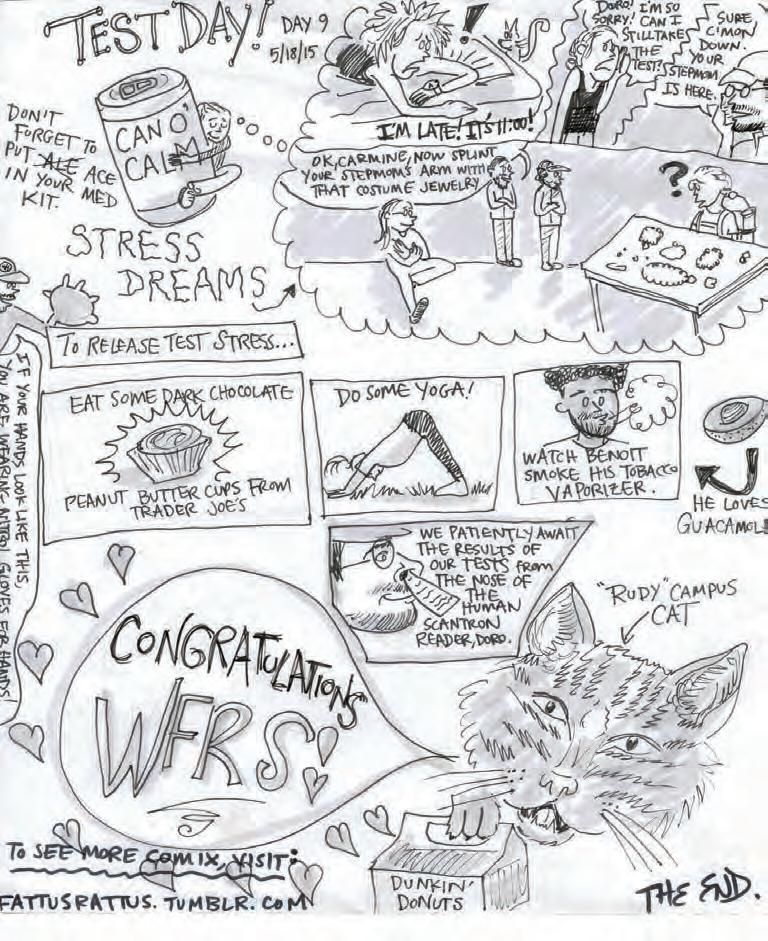 TEST DAY!
DAY 9
5/18/15
DON'T
FORGET TO
PUT ALE ACE
IN YOUR MED
KIT.
CAN O'
CALM
!
I'M LATE! IT'S 11:00!
DORO! I'M SO
SORRY! CAN I
STILL TAKE
THE
TEST?
SURE,
C'MON
DOWN.
YOUR
STEPMOM
IS HERE.
OK, CARMINE, NOW SPLINT
YOUR STEPMOM'S ARM WITH
THAT COSTUME JEWELRY
?
STRESS
DREAMS
TO RELEASE TEST STRESS...
IF YOUR HANDS LOOK LIKE THIS,
YOU ARE WEARING NITRIL GLOVES FOR HANDS!
EAT SOME DARK CHOCOLATE
PEANUT BUTTER CUPS FROM
TRADER JOE'S
DO SOME YOGA!
WATCH BENOIT
SMOKE HIS TOBACCO
VAPORIZER.
HE LOVES
GUACAMOLE
WE PATIENTLY AWAIT
THE RESULTS OF
OUR TESTS FROM
THE NOSE OF
THE
HUMAN
SCANTRON
READER, DORO.
"RUDY" CAMPUS
CAT
CONGRATULATIONS
WFRS
DUNKIN'
DONUTS
TO SEE MORE COMIX, VISIT:
FATTUSRATTUS.TUMBLR.COM
THE END.